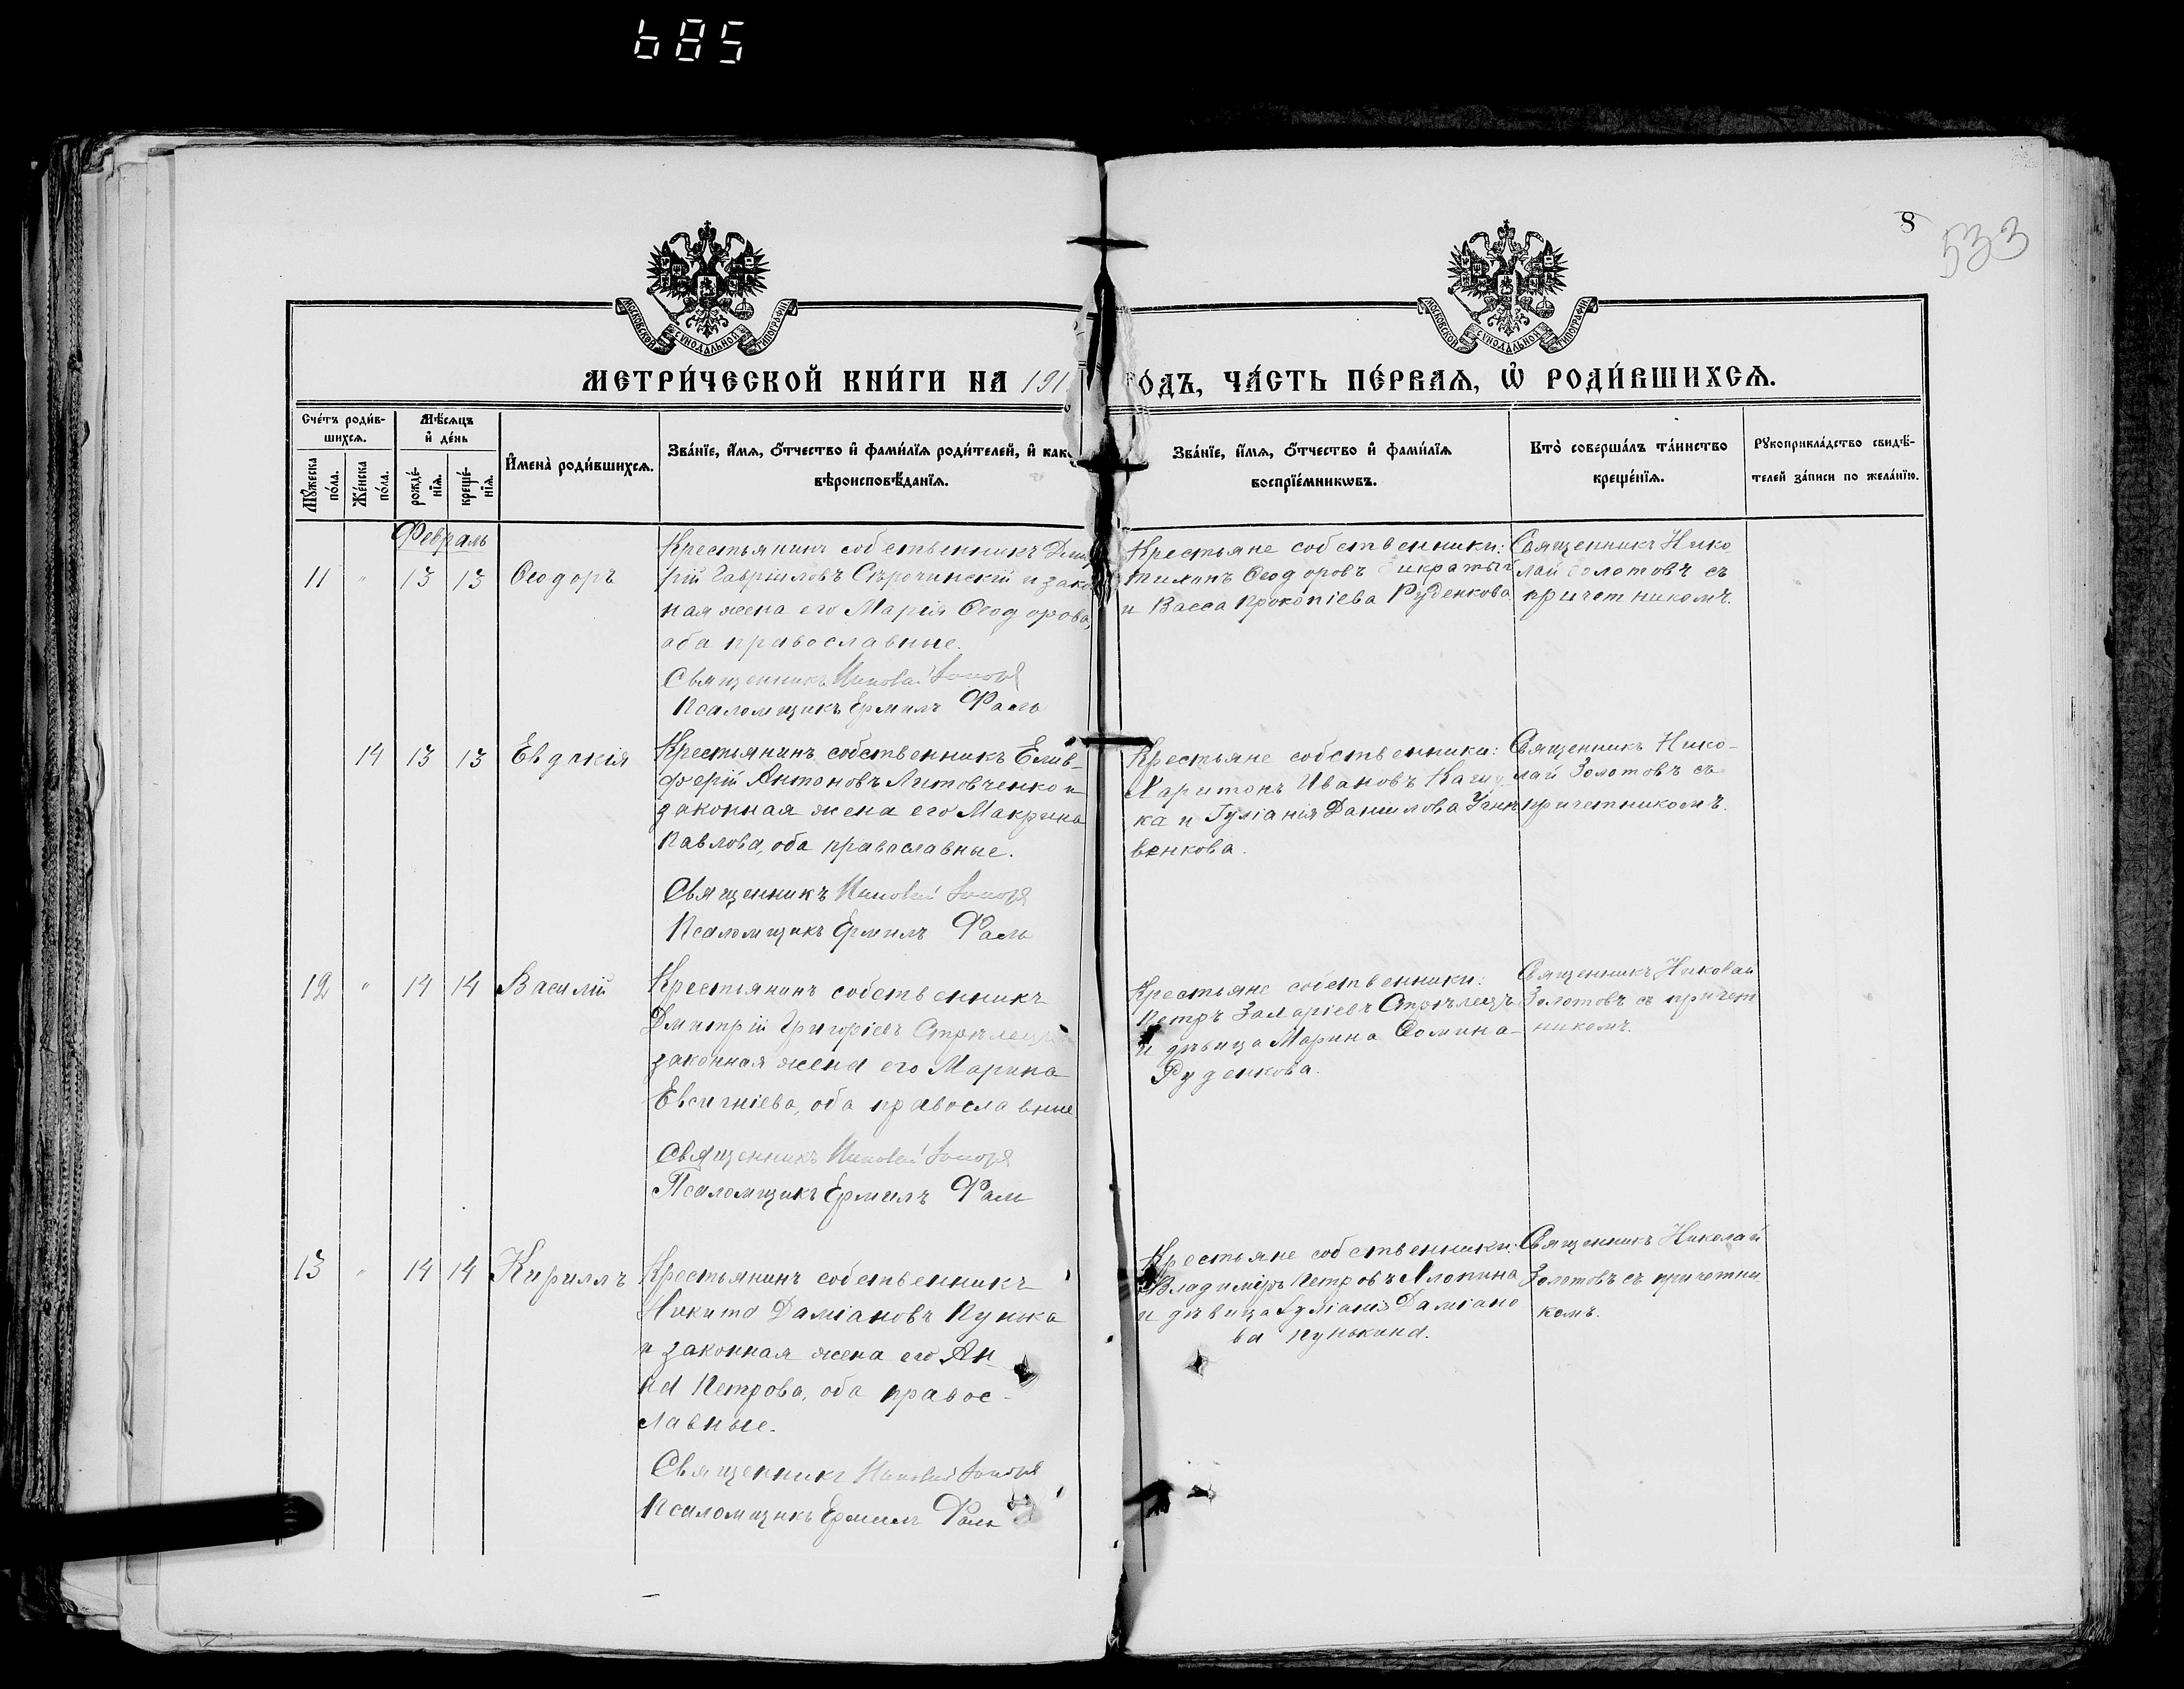 685
8
533
МОСКОВСКОЙ СѴНОДАЛЬНОЙ ТИПОГРАФІИ
МОСКОВСКОЙ СѴНОДАЛЬНОЙ ТИПОГРАФІИ
МЕТРИ́ЧЕСКОЙ КНИ́ГИ НА 191 ГО́ДЪ, ЧА́СТЬ ПЕ́РВАЯ, Ѽ РОДИ́ВШИХСЯ.
Сче́тъ роди́в-
шихся.
Мꙋ́жеска по́ла.
Же́нска по́ла.
Мѣ́сяцъ
и҆ де́нь
рожде́-
нїя.
креще́-
нїя.
И҆мена̀ роди́вшихся.
Зва́нїе, и҆́мя, ѻ҆́тчество и҆ фами́лїя роди́телей, и҆ како
вѣроисповѣ́данїя.
Зва́нїе, и҆́мя, ѻ҆́тчество и҆ фами́лїя
воспрїе́мникѡвъ.
Кто̀ соверша́лъ та́инство
креще́нїя.
Рꙋкоприкла́дство свидѣ́-
телей за́писи по жела́нїю.
Февраль
11 " 13 13 Ѳеодоръ
Крестьянинъ собственникъ Дми
рій Гавріиловъ Сѣрочинскій и зако
ная жена его Марія Ѳеодорова,
оба православные.
Священникъ Николай
Псаломщикъ Ермилъ Фаль
Крестьяне собственники:
Тихонъ Ѳеодоровъ
и Васса Прокопіева Руденкова
Священникъ Нико
лай Золотовъ съ
причетникомъ.
14 13 13 Евдокія
Крестьянинъ собственникъ Елев-
ферій Антоновъ Литовченко и
законная жена его Макрина
Павлова, оба православные.
Священникъ Николай
Псаломщикъ Ермилъ Фаль
Крестьяне собственники:
Харитонъ Ивановъ
ка и Іуліанія Даніилова
венкова.
Священникъ Нико-
лай Золотовъ съ
причетникомъ.
12 " 14 14 Василій
Крестьянинъ собственникъ
Дмитрій Григоріевъ Стрѣлецъ
законная жена его Марина
Евсигніева, оба православные
Священникъ Николай
Псаломщикъ Ермилъ Фаль
Крестьяне собственники:
Петръ Стрѣлецъ
и дѣвица Марина Ѳомина
Руденкова.
Священникъ Николай
Золотовъ съ причет
никомъ.
13 " 14 14 Кириллъ
Крестьянинъ собственникъ
Никита Даміановъ Пунька
и законная жена его Ан-
на Петрова, оба правос-
лавные.
Священникъ Николай
Псаломщикъ Ермилъ Фаль
Крестьяне собственники:
Владиміръ Петровъ
и дѣвица Іуліанія Даміано
ва Пунькина.
Священникъ Николай
Золотовъ съ причетни
комъ.